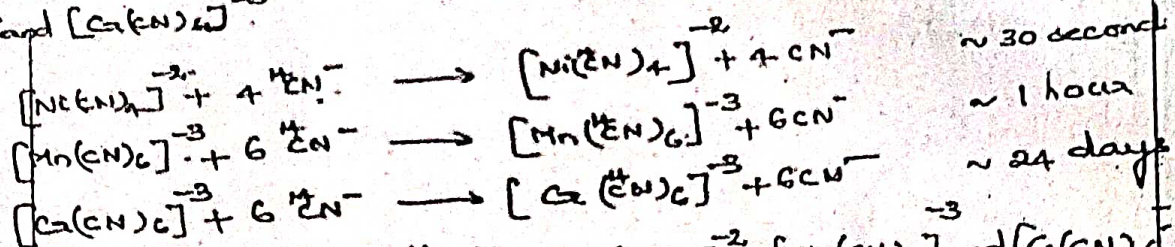 and [Cr(CN)6]
[Ni(CN)4]⁻² + 4 ¹⁴CN⁻ → [Ni(¹⁴CN)4]⁻² + 4 CN⁻ ~ 30 second
[Mn(CN)6]⁻³ + 6 ¹⁴CN⁻ → [Mn(¹⁴CN)6]⁻³ + 6CN⁻ ~ 1 hour
[Cr(CN)6]⁻³ + 6 ¹⁴CN⁻ → [Cr(¹⁴CN)6]⁻³ + 6CN⁻ ~ 24 days